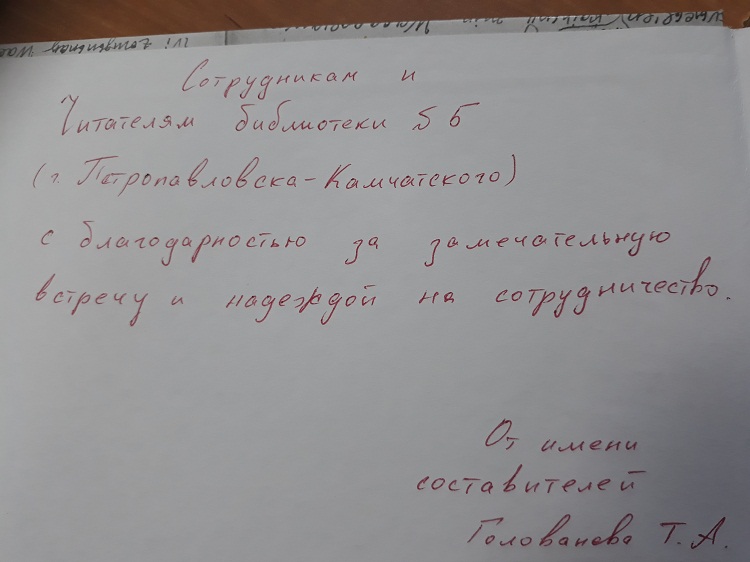 Сотрудникам и
Читателям библиотеки
(г. Петропавловска-Камчатского)
с благодарностью за замечательную
встречу и надеждой на сотрудничество.
От имени
составителей
Голованева Т. А.